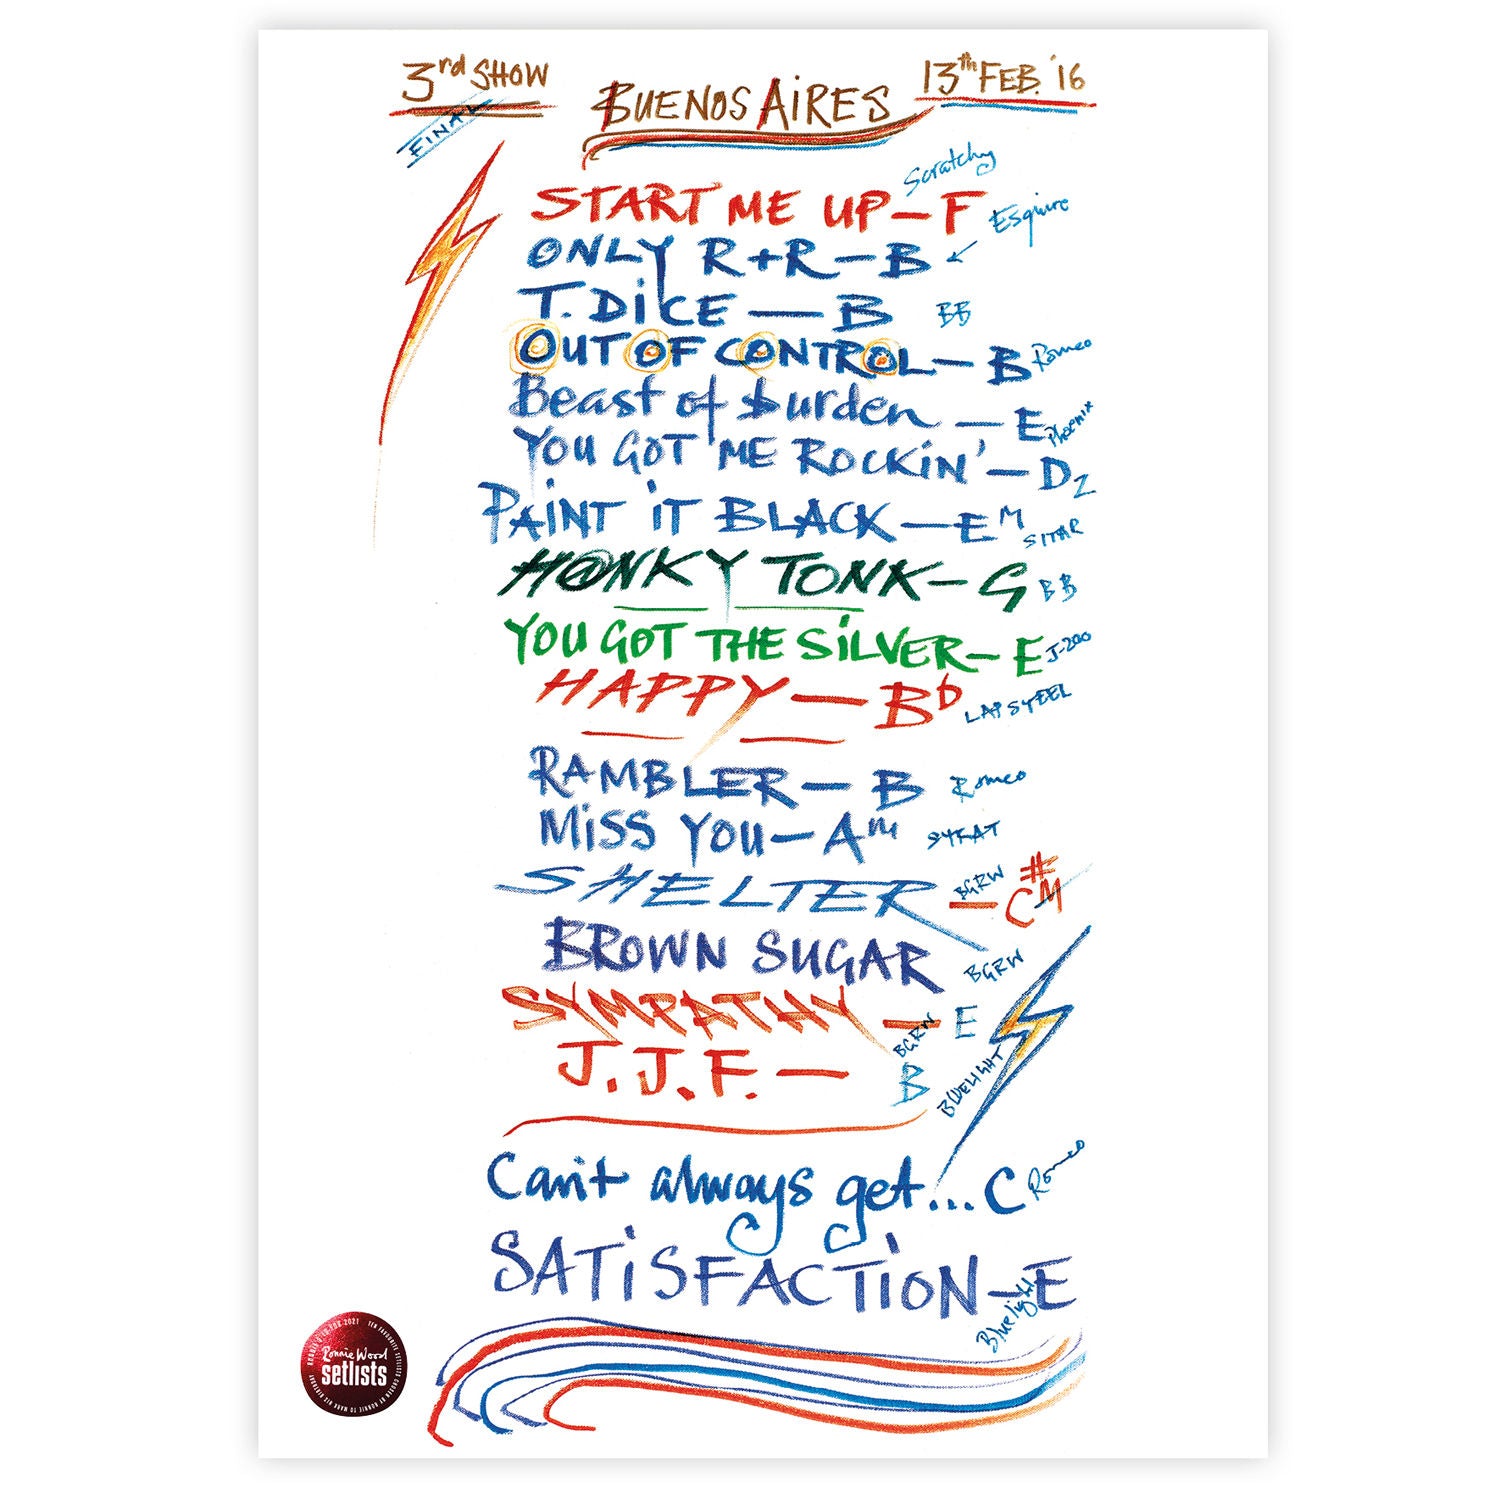 3rd SHOW BUENOS AIRES 13th FEB. '16
FINAL
Scratchy
START ME UP – F Esquire
ONLY R+R – B ←
T. DiCE — B BB
OUT OF CONTROL – B Romeo
Beast of burden – E Phoenix
YOU GOT ME ROCKiN' – D Z
PAiNT iT BLACK – EM SITAR
H@NKY TONK – G BB
YOU GOT THE SiLVER – E J-200
HAPPY — Bb LAP STEEL
RAMBLER – B Romeo
MiSS YOU – Am STRAT
SHELTER – C#M BGRW
BROWN SUGAR BGRW
SYMPATHY – E BGRW
J.J.F. — B BLUELIGHT
Can't always get... C Romeo
SATiSFACTiON – E Bluelight
Ronnie Wood
setlists